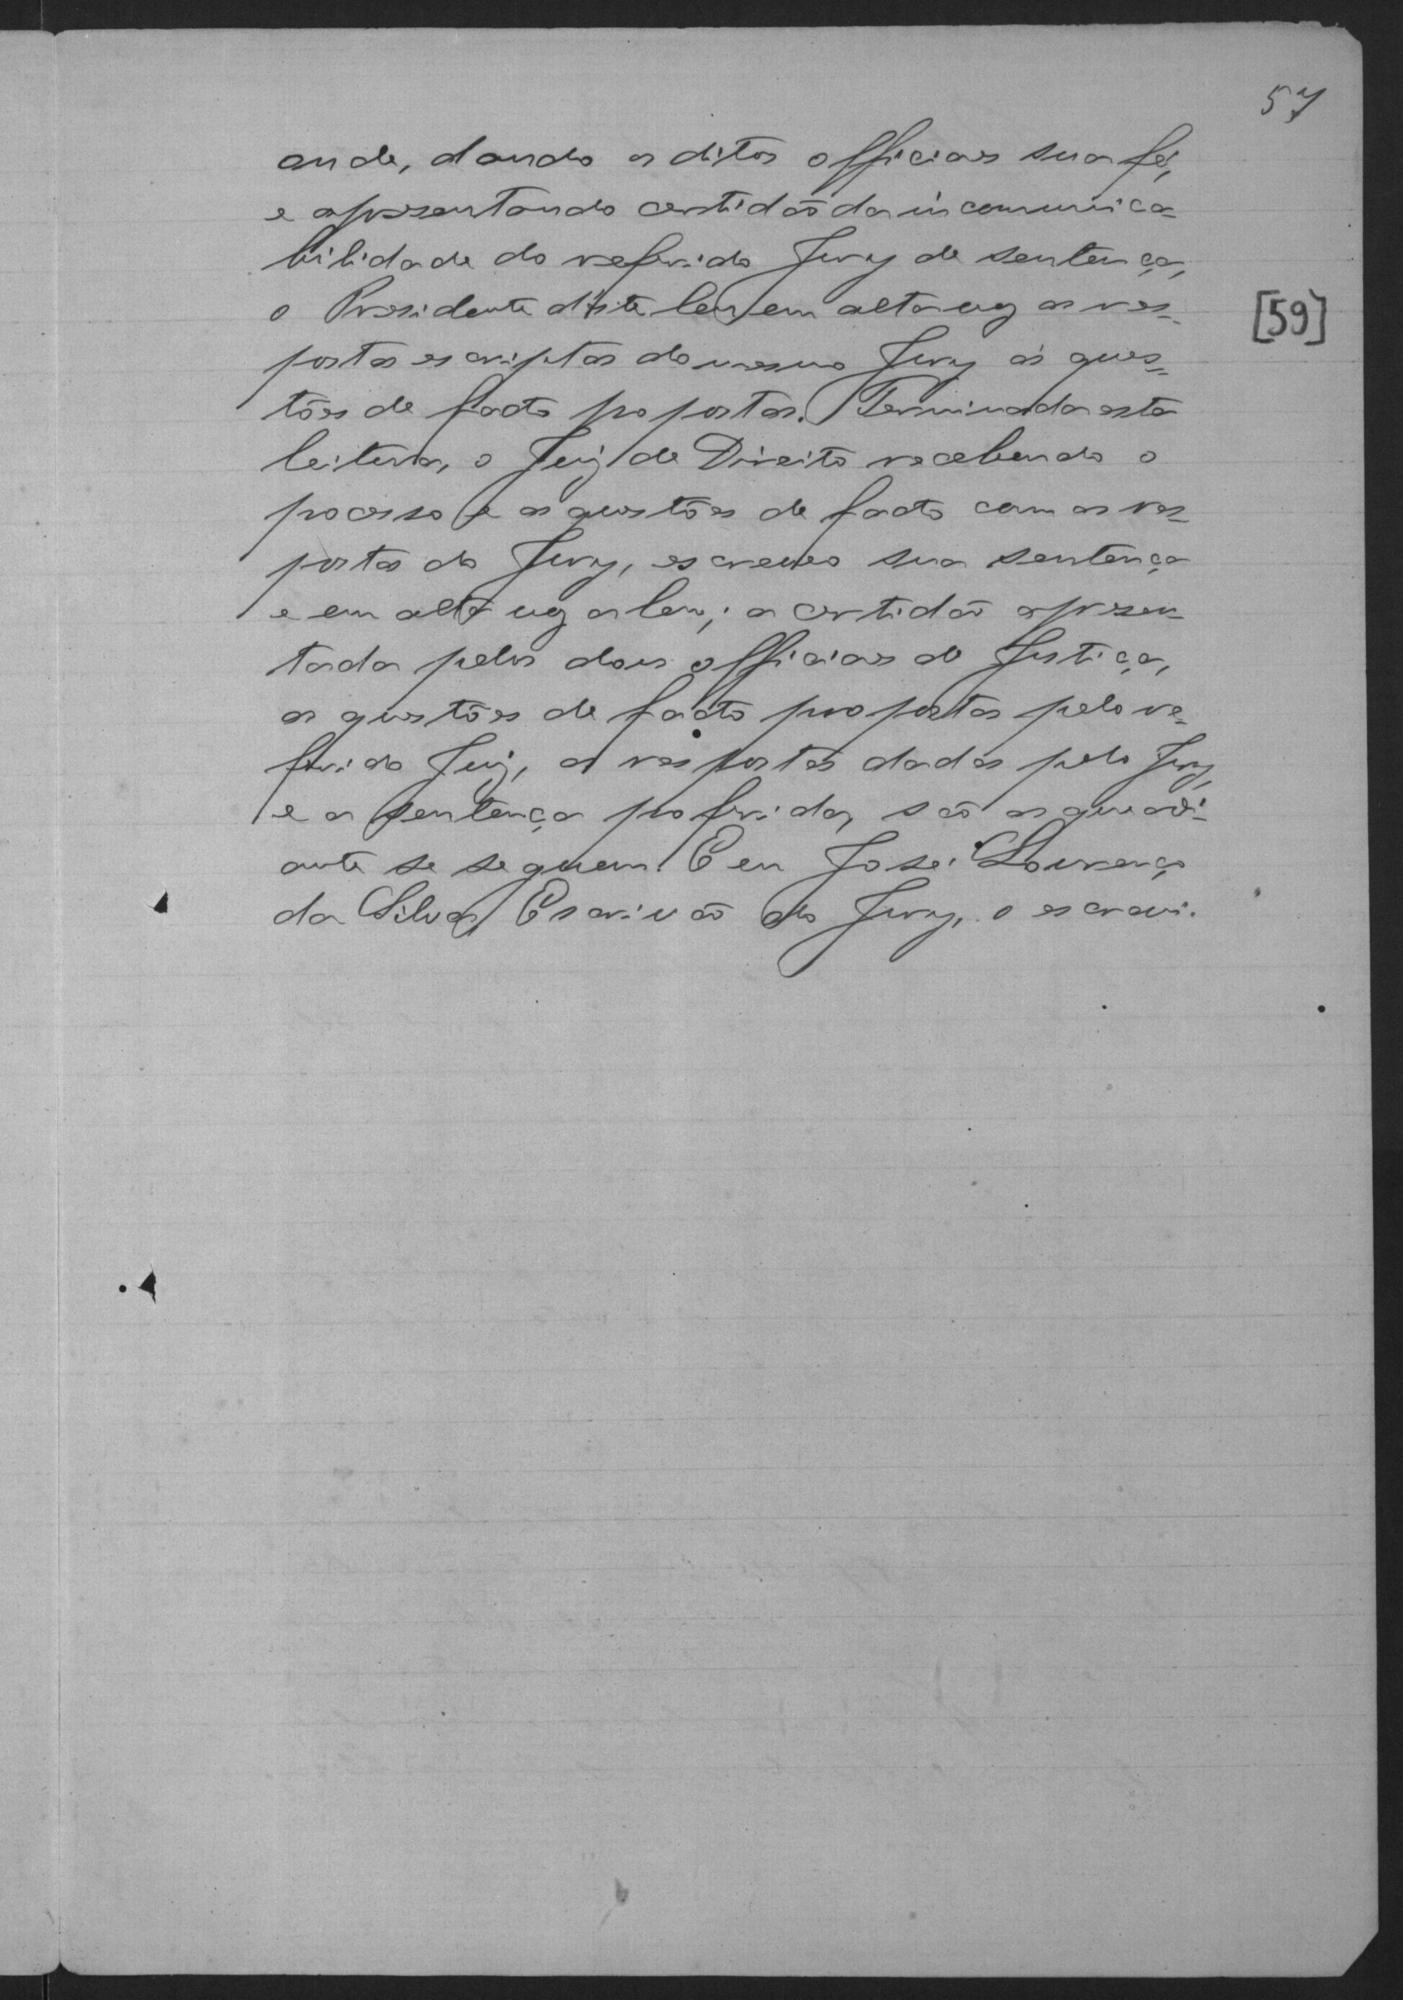 57
onde, dando os ditos officiaes sua fé,
e apresentando certidão da incommunica=
bilidade do referido Jury de sentença,
o Presidente d'este leu em alta voz as res=
[59]
postas escriptas do mesmo Jury ás ques=
tões de facto propostas. Terminada esta
leitura, o Juiz de Direito recebendo o
processo e as questões de facto com as res=
postas do Jury, escreveo sua sentença
e em alta voz a leu; a certidão apresen=
tada pelos dois officiaes de Justiça,
as questões de facto propostas pelo re=
ferido Juiz, as respostas dadas pelo Jury,
e a sentença proferida, são as que adi=
ante se seguem. E eu José Lourenço
da Silva, Escrivão do Jury, o escrevi.